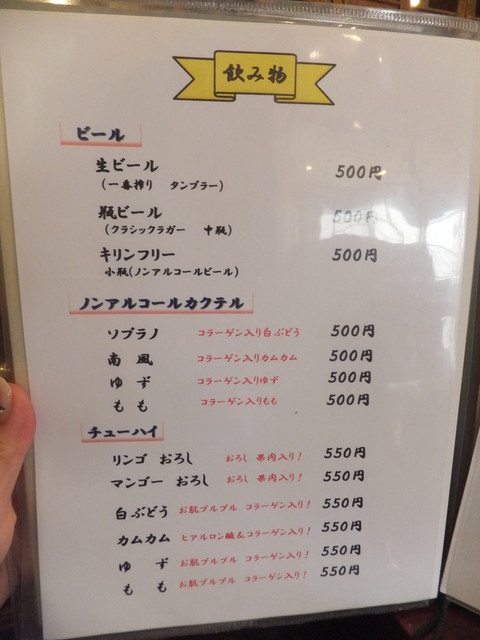 飲み物
ビール
生ビール 500円
(一番搾り タンブラー)
瓶ビール 500円
(クラシックラガー 中瓶)
キリンフリー 500円
小瓶(ノンアルコールビール)
ノンアルコールカクテル
ソプラノ コラーゲン入り白ぶどう 500円
南 風 コラーゲン入りカムカム 500円
ゆ ず コラーゲン入りゆず 500円
も も コラーゲン入りもも 500円
チューハイ
リンゴ おろし おろし 果肉入り! 550円
マンゴー おろし おろし 果肉入り! 550円
白ぶどう お肌プルプル コラーゲン入り! 550円
カムカム ヒアルロン酸&コラーゲン入り! 550円
ゆ ず お肌プルプル コラーゲン入り! 550円
も も お肌プルプル コラーゲン入り! 550円